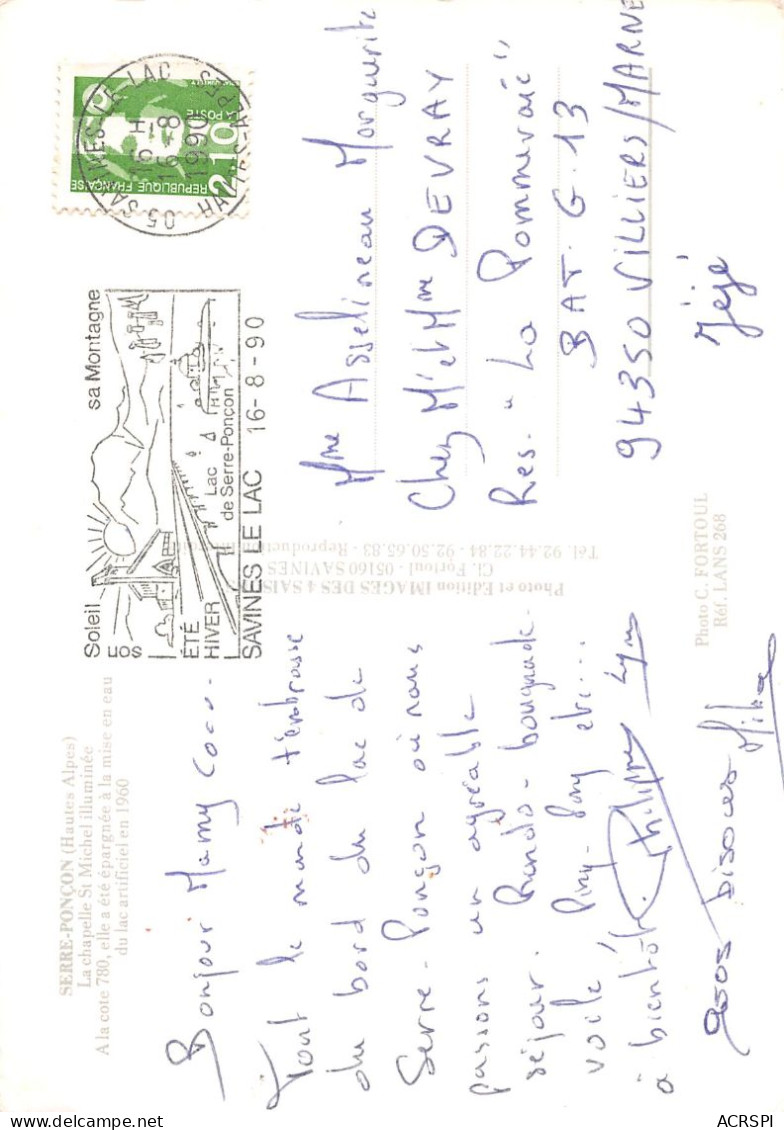 SERRE-PONÇON (Hautes Alpes)
La chapelle St Michel illuminée
A la cote 780, elle a été épargnée à la mise en eau
du lac artificiel en 1960
Bonjour Mamy Coco.
Tout le monde t'embrasse
du bord du lac de
Serre-Ponçon où nous
passons un agréable
séjour. Rando - baignade
voile Ping-Pong etc...
à bientôt Philippe
Gros Bisous
Soleil sa Montagne
son
ÉTÉ
HIVER
Lac
de Serre-Ponçon
SAVINES LE LAC 16-8-90
05 SAVINES-LE-LAC
16 H
16 -8
1990
HAUTES-ALPES
2,10
LA POSTE
REPUBLIQUE FRANÇAISE
Mme Asselineau Marguerite
Chez Mr et Mme DEVRAY
Res. "La Pommeraie"
BAT. G. 13
94350 VILLIERS/MARNE
Jéjé
Photo et Edition IMAGES DES 4 SAISONS
Cl. Fortoul - 05160 SAVINES
Tél. 92.44.22.84 - 92.50.65.83 - Reproduction
Photo C. FORTOUL
Réf. LANS 268
ACRSPI